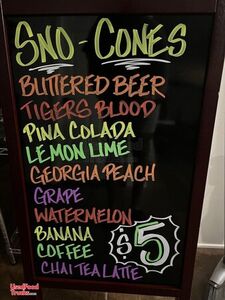 SNO-CONES
BUTTERED BEER
TIGERS BLOOD
PINA COLADA
LEMON LIME
GEORGIA PEACH
GRAPE
WATERMELON
BANANA
COFFEE
$5
CHAI TEA LATTE
UsedFood
Trucks.com